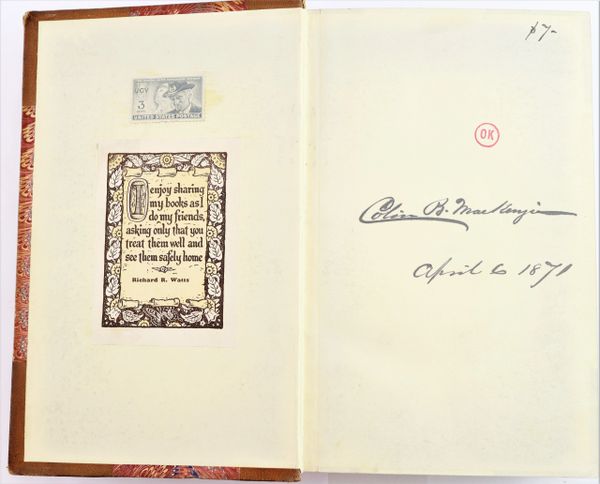 UCV
3
UNITED STATES POSTAGE
I enjoy sharing
my books as I
do my friends,
asking only that you
treat them well and
see them safely home
Richard R. Watts
$7-
OK
Colin B. MacKenzie
April 6 1871